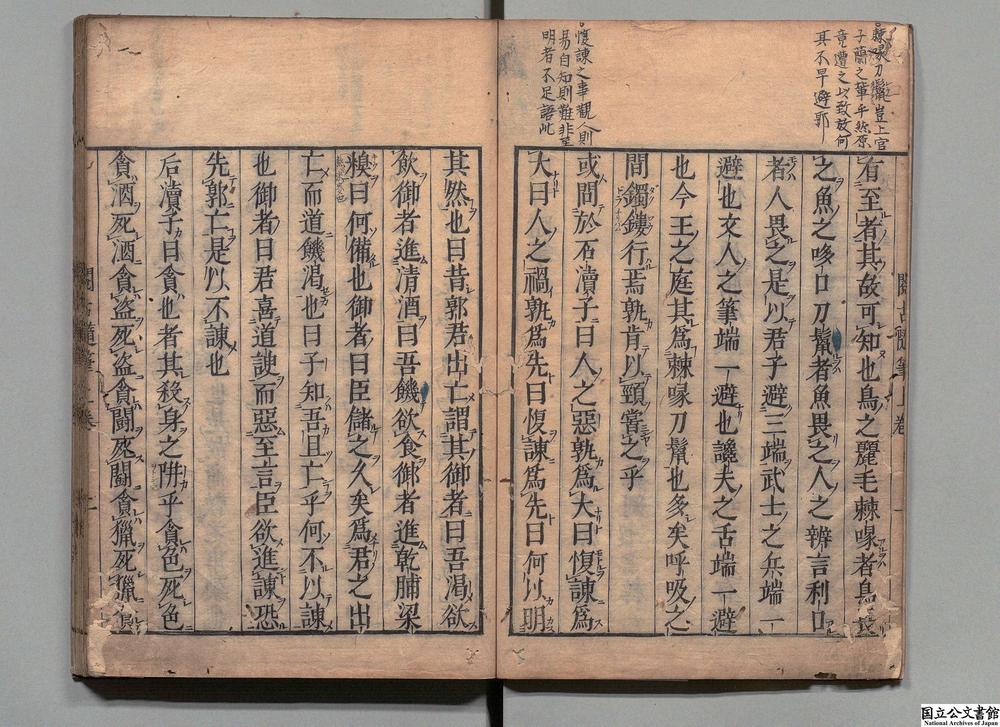 棘喙刀鬣豈上官
子蘭之輩乎然原
竟遭之以致放何
其不早避耶
愎諫之事觀人則
易自知則難非至
明者不足語此
有至者其故可知也鳥之麗毛棘喙者鳥畏
之魚之哆口刀鬣者魚畏之人之辨言利口
者人畏之是以君子避三端武士之兵端一
避也文人之筆端一避也讒夫之舌端一避
也今王之庭其爲棘喙刀鬣也多矣呼吸之
間鐲鏤行焉孰肯以頸嘗之乎
或問於石瀆子曰人之惡孰爲大曰愎諫爲
大曰人之禍孰爲先曰愎諫爲先曰何以明
其然也曰昔郭君出亡謂其御者曰吾渴欲
飲御者進清酒曰吾饑欲食御者進乾脯梁
糗曰何備也御者曰臣儲之久矣爲君之出
亡而道饑渴也曰子知吾且亡乎何不以諫
也御者曰君喜道諛而惡至言臣欲進諫恐
先郭亡是以不諫也
后瀆子曰貪也者其殺身之阱乎貪色死色
貪酒死酒貪盜死盜貪鬪死鬪貪獵死獵
閒古隨筆上卷
国立公文書館
National Archives of Japan